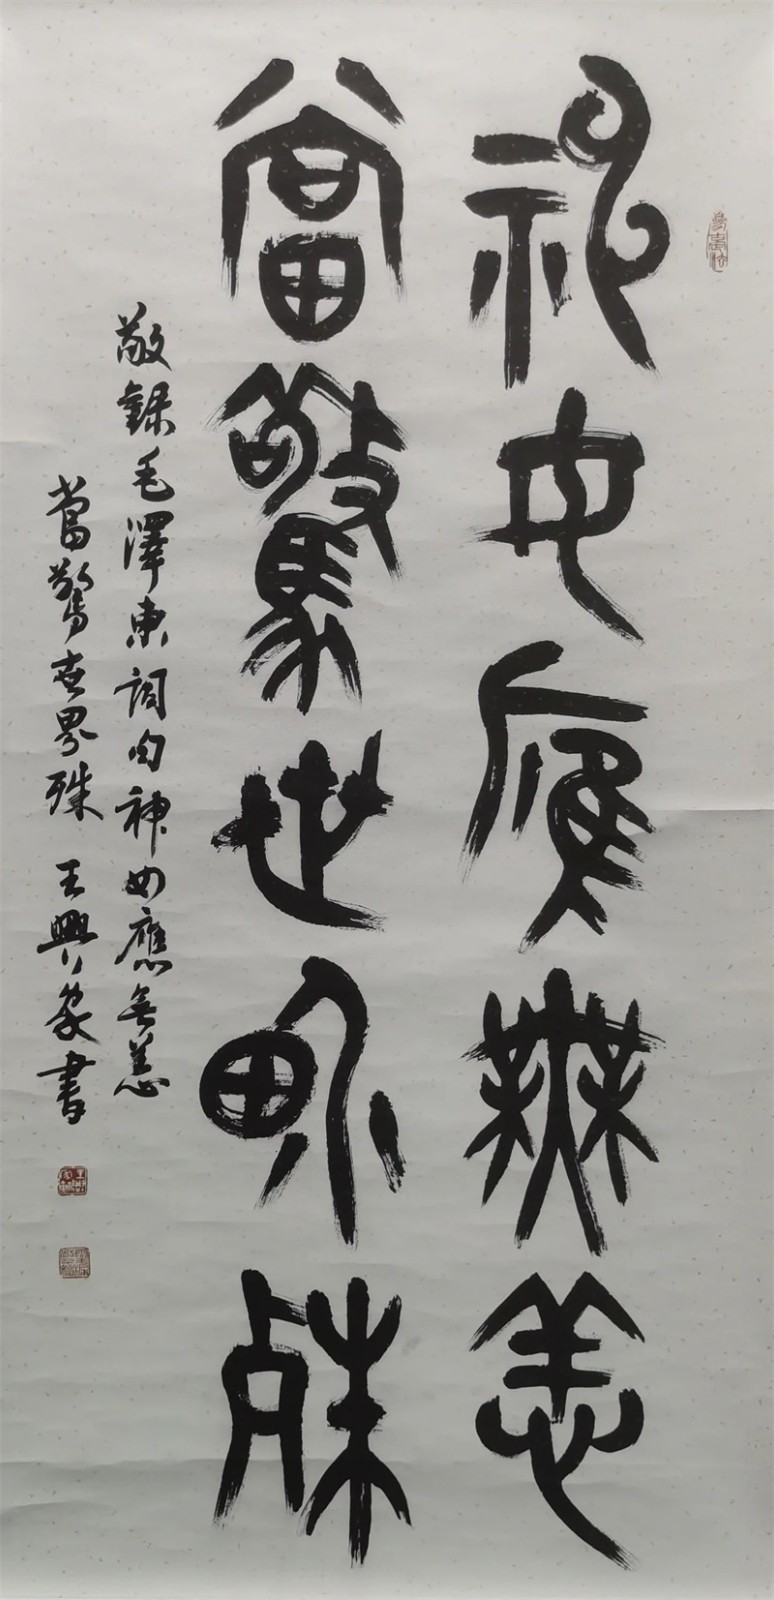 神女應無恙
當驚世界殊
敬錄毛澤東詞句神女應無恙
當驚世界殊 王興家書